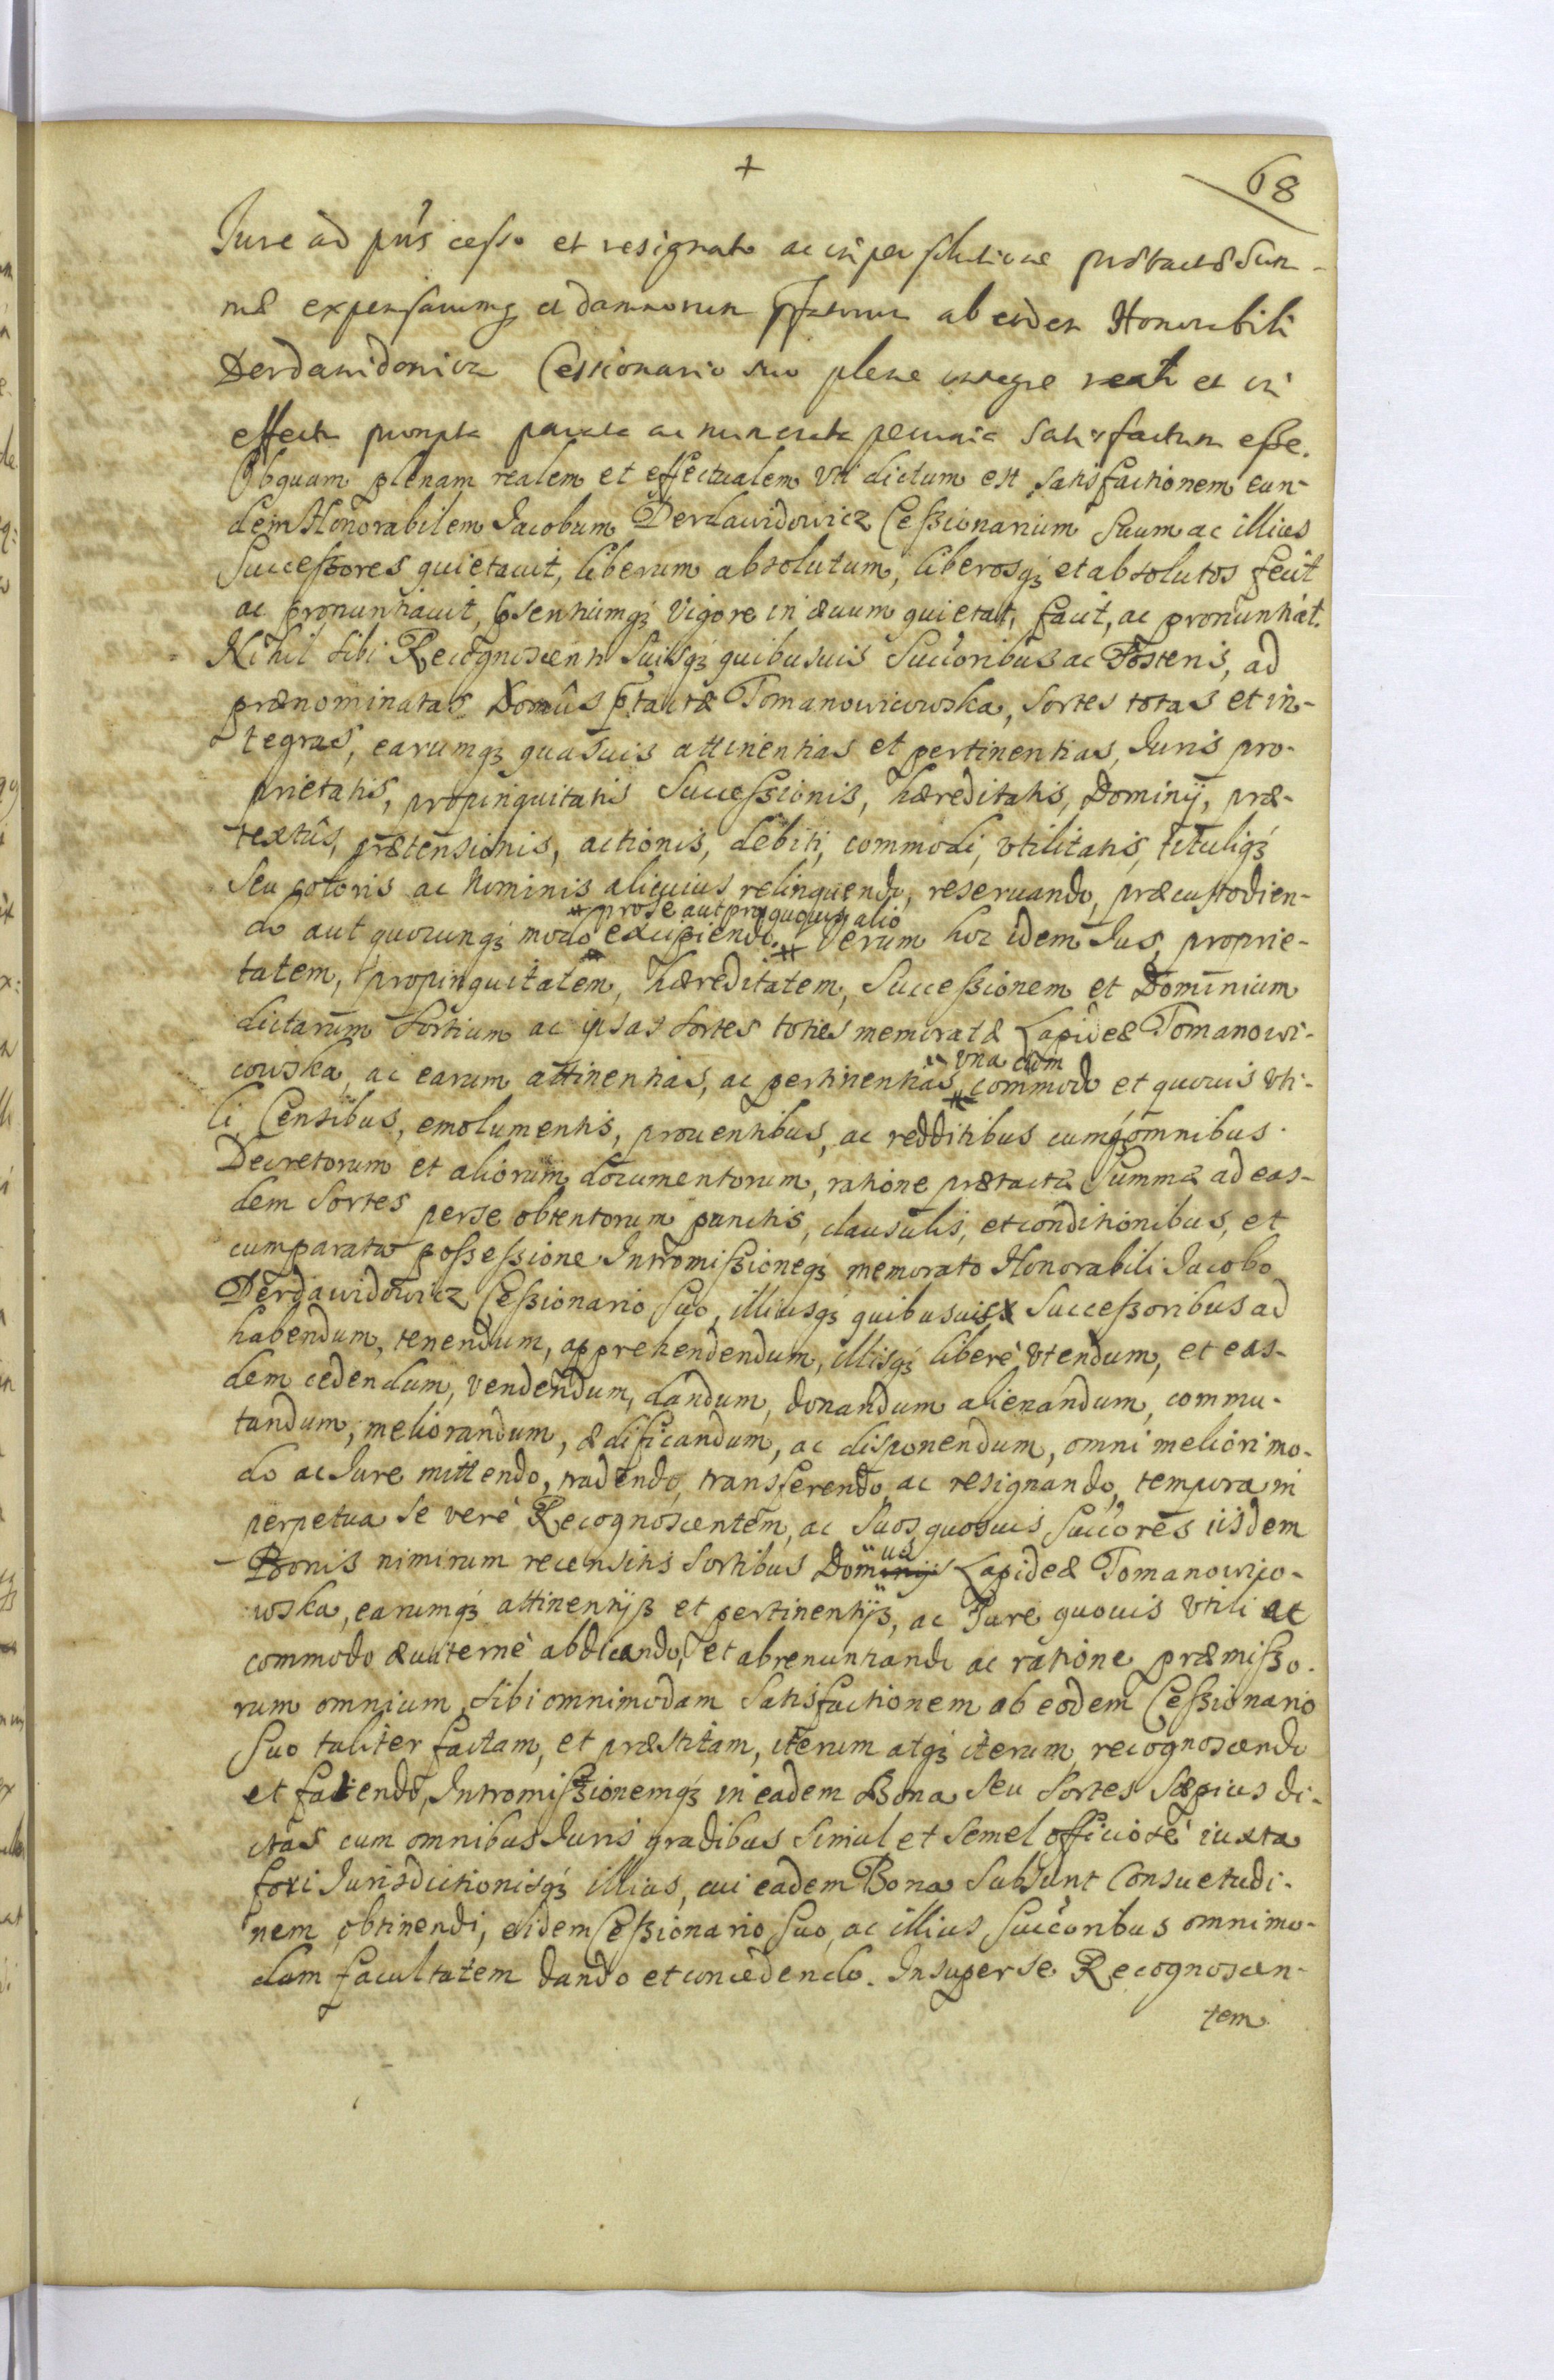 +
68
Jure ad pn̄s cesso et resignato ac in persolutione prætactæ Sum-
mæ expensarumq3 et damnorum ab eodem Honorabili
Derdawidowicz Cessionario suo plene integre reali et in
effectu prompta parata ac numerata pecunia satisfactum esse.
Ob quam plenam realem et effectualem uti dictum est satisfactionem eun-
dem Honorabilem Jacobum Derdawidowicz Cessionarium Suum ac illius
Successores quietavit, liberum absolutum, liberosq3 et absolutos fecit
ac pronuntiavit, p̄sentiumq3 Vigore in ævum quietat, facit, ac pronuntiat.
Nihil sibi Recognoscenti Suisq3 quibusuis Succoribus ac Posteris, ad
prænominatas Domûs p̄tactæ Tomanowicowska, Sortes totas et in-
tegras, earumq3 quasuis attinentias et pertinentias, Juris pro-
prietatis, propinquitatis Successionis, hæreditatis, Dominij, præ-
textûs, prætensionis, actionis, debiti, commodi, utilitatis, tituliq3
Seu coloris ac Nominis alicuius relinquendo, reseruando, præcustodien-
pro se aut pro quouis alio
do aut quocunq3 modo excipiendo. Verum hoc idem Jus, proprie-
tatem, propinquitatem, hæreditatem, Successionem et Dominium
dictarum Sortium ac ipsas Sortes toties memoratæ Lapideæ Tomanowi-
una cum
cowska, ac earum attinentias, ac pertinentias, commodo et quouis uti-
li Censibus, emolumentis, prouentibus, ac redditibus cumq3 omnibus
Decretorum et aliorum documentorum, ratione prætactæ Summæ ad eas-
dem Sortes per se obtentorum punctis, clausulis, et conditionibus, et
cum parata possessione Intromissioneq3 memorato Honorabili Jacobo
Derdawidowicz Cessionario Suo, illiusq3 quibusuis Successoribus ad
habendum, tenendum, apprehendendum, illisq3 liberè utendum, et eas-
dem cedendum, vendendum, dandum, donandum alienandum, commu-
tandum, meliorandum, ædificandum, ac disponendum, omni meliori mo-
do ac Jure mittendo, tradendo, transferendo, ac resignando, tempora in
perpetua Se verè Recognoscentem, ac Suos quosuis Succores iisdem
us
Bonis nimirum recensitis Sortibus Dominij Lapideæ Tomanowico-
wska, earumq3 attinentijs et pertinentijs, ac Jure quouis Utili et
commodo æuiternè abdicando, et abrenuntiando ac ratione præmisso-
rum omnium, sibi omnimodam Satisfactionem ab eodem Cessionario
Suo taliter factam, et præstitam, iterum atq3 iterum recognoscendo
et fatendo, Intromissionemq3 in eadem Bona Seu Sortes Sæpius di-
ctas cum omnibus Juris gradibus Simul et Semel officiosè iuxta
fori Jurisdictionisq3 illius, cui eadem Bona Subsunt Consuetudi-
nem obtinendi, eidem Cessionario Suo, ac illius Succoribus omnimo-
dam facultatem dando et concedendo. Insuper se Recognoscen-
tem